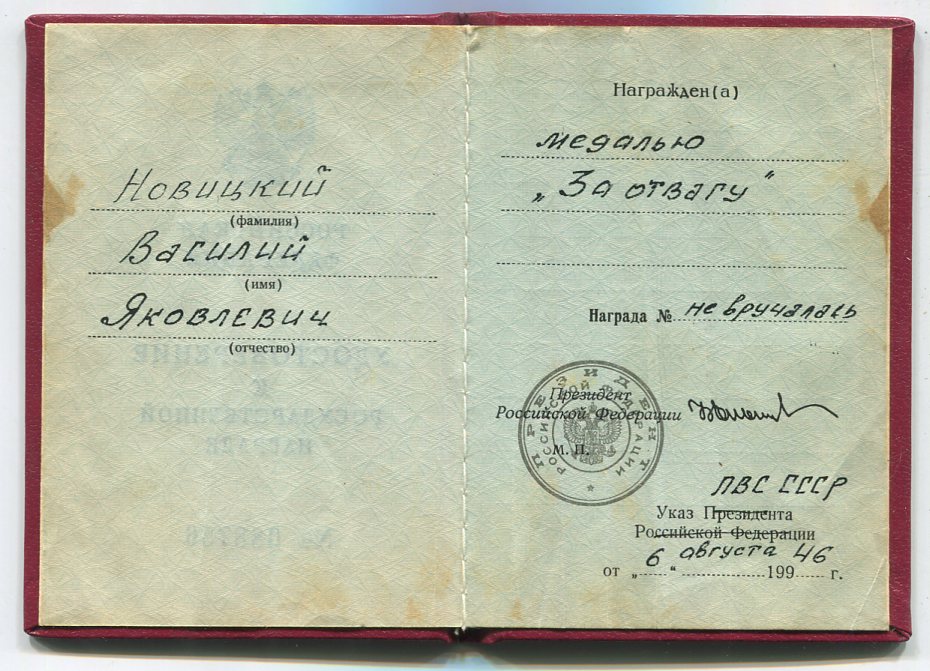 Новицкий
(фамилия)
Василий
(имя)
Яковлевич
(отчество)
Награжден(а)
медалью
„За отвагу"
Награда № не вручалась
Президент
Российской Федерации
М. П.
ПРЕЗИДЕНТ
РОССИЙСКОЙ ФЕДЕРАЦИИ
ПВС СССР
Указ Президента
Российской Федерации
от „6" августа 199 46 г.